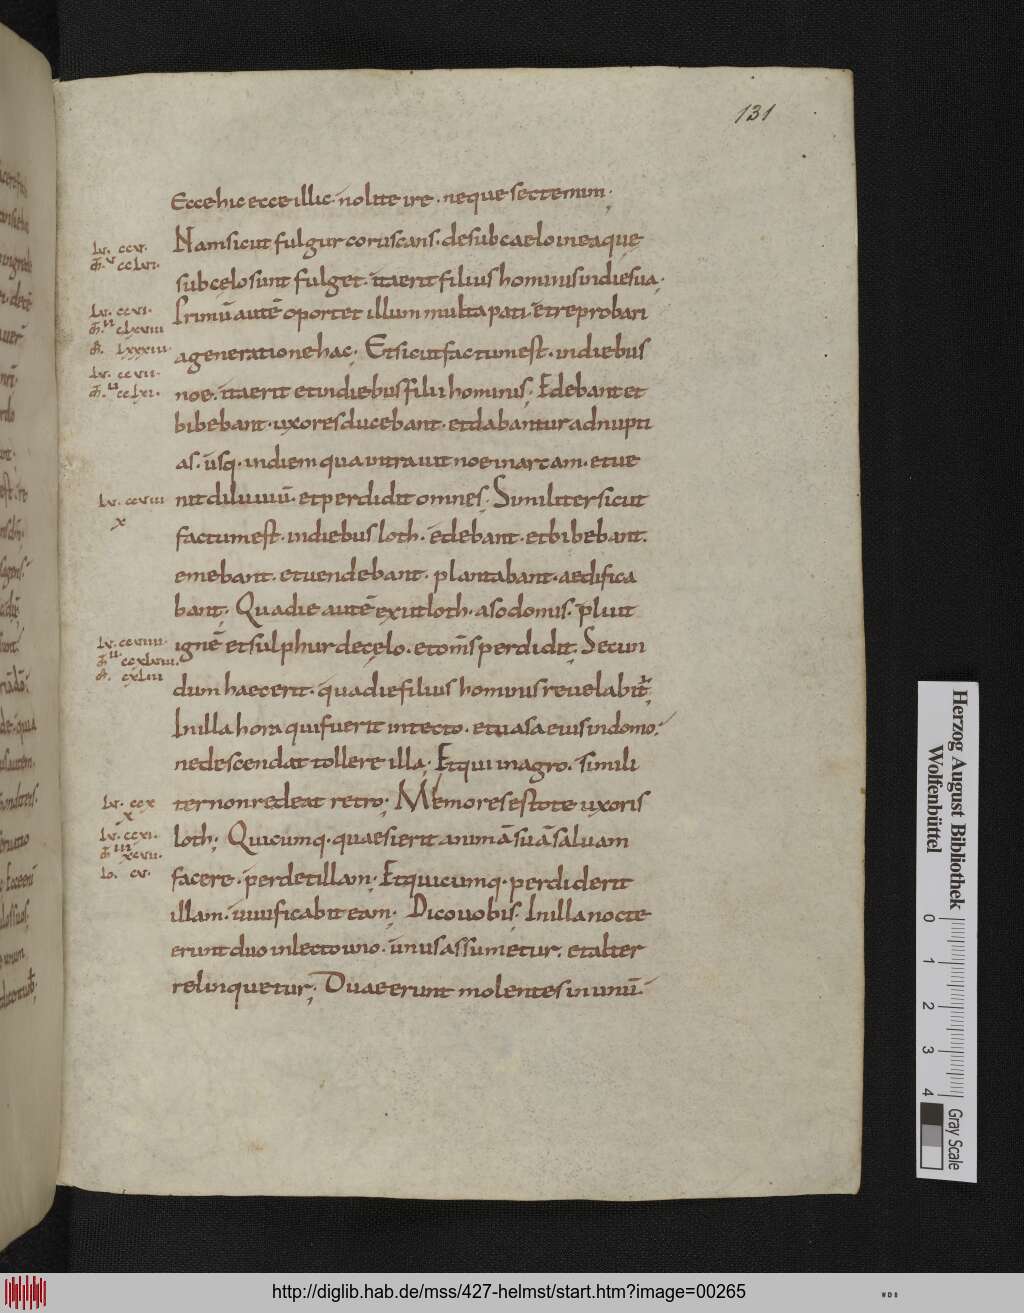 131
Ecce hic ecce illic. nolite ire. neque sectemini.
Nam sicut fulgur coruscans. de sub caelo in ea que
sub celo sunt fulget. ita erit filius hominis in die sua.
Primū autē oportet illum multa pati. et reprobari
a generatione hac. Et sicut factum est. in diebus
noe. ita erit et in diebus filii hominis. Edebant et
bibebant. uxores ducebant. et dabantur ad nupti
as. usq. in diem qua intrauit noe in arcam. et ue
nit diluuiū. et perdidit omnes. Similiter sicut
factum est. in diebus loth. edebant. et bibebant.
emebant. et uendebant. plantabant. aedifica
bant. Qua die autē exiit loth. a sodomis. pluit
ignē et sulphur de celo. et om̄s perdidit. Secun
dum haec erit. qua die filius hominis reuelabit᷒
In illa hora qui fuerit in tecto. et uasa eius in domo.
ne descendat tollere illa. Et qui in agro. simili
ter non redeat retro. Memores estote uxoris
loth. Quicumq. quaesierit animā suā saluam
facere. perdet illam. Et quicumq. perdiderit
illam. uiuificabit eam. Dico uobis. In illa nocte
erunt duo in lecto uno. unus assumetur. et alter
relinquetur. Duae erunt molentes in unū.
Lv. ccv.
cclvi.
Lv. ccvi.
clxxviii
lxxxiii
Lv. ccvii.
cclxi.
Lv. ccviii
x
Lv. ccviiii.
ccxlviii.
cxliii
Lv. ccx
x
Lv. ccxi.
xcvii.
Io. cv.
Herzog August Bibliothek
Wolfenbüttel
0 1 2 3 4
Gray Scale
http://diglib.hab.de/mss/427-helmst/start.htm?image=00265